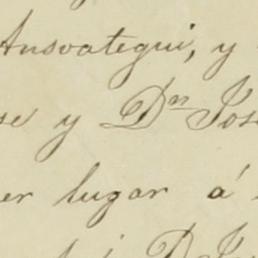 Ansoategui, y
se y Dn Jos
er lugar á